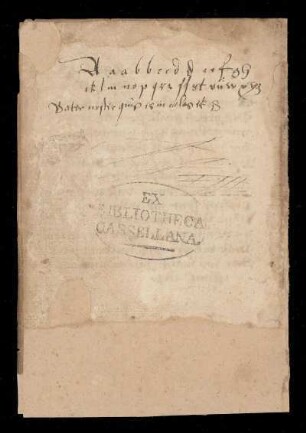 A a a b b c d d e f g h
i k l m n o p q r s ſ t v u w x y z
Pater noster qui es in celis
EX
BIBLIOTHECA
CASSELLANA.